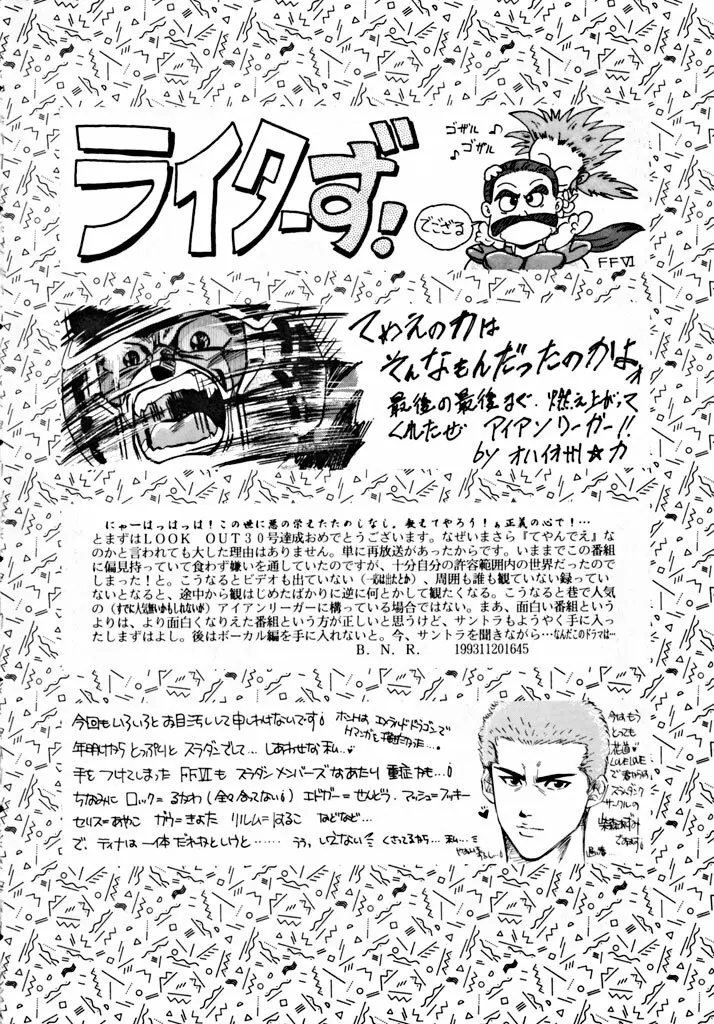 ライターず!
ゴザル♪
♪ゴザル
でござる
FFVI
てめえの力は
そんなもんだったのかよォ
最後の最後まで、燃え上がって
くれたぜ アイアンリーガー!!
by オハイオ州☆力
にゃーはっはっは!この世に悪の栄えたためしなし。教えてやろう!ぁ正義の心で!…
とまずはLOOK OUT30号達成おめでとうございます。なぜいまさら『てやんでえ』な
のかと言われても大した理由はありません。単に再放送があったからです。いままでこの番組
に偏見持っていて食わず嫌いを通していたのですが、十分自分の許容範囲内の世界だったので
しまった!と。こうなるとビデオも出ていない、周囲も誰も観ていない録ってい
ないとなると、途中から観はじめたばかりに逆に何とかして観たくなる。こうなると巷で人気
の(すでに人気無いかもしれないが)アイアンリーガーに構っている場合ではない。まあ、面白い番組という
よりは、より面白くなりえた番組という方が正しいと思うけど、サントラもようやく手に入っ
たしまずはよし。後はボーカル編を手に入れないと。今、サントラを聞きながら…なんだこのドラマは…
B. N. R. 199311201645
今回もいろいろとお目汚しして申しわけないです!
ホントは エメラルドドラゴンで
マンガと描きたかった…!
年明けから とっぷりと スラダンでして… しあわせな 私…
手をつけてしまった FFVIも スラダンメンバーズなあたり 重症かも…!
ちなみに ロック=るかわ(全々合ってない!) エドガー=せんどう. マッシュ=フッキー
セリス=あやこ ガウ=きよた リルム=はるこ などなど…
で、ティナは一体だれなというと…… うぅ、しどない くさってるから…私…
今はもう
とても
花道
LOVELOVE
で
スラムダンク
サークルの